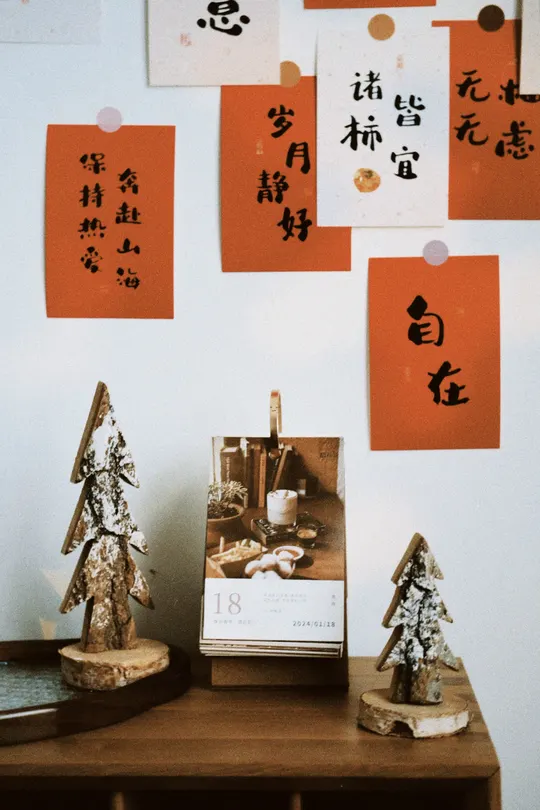 保持热爱
奔赴山海
岁月
静好
诸柿
皆宜
无
无虑
自在
18
2024/01/18